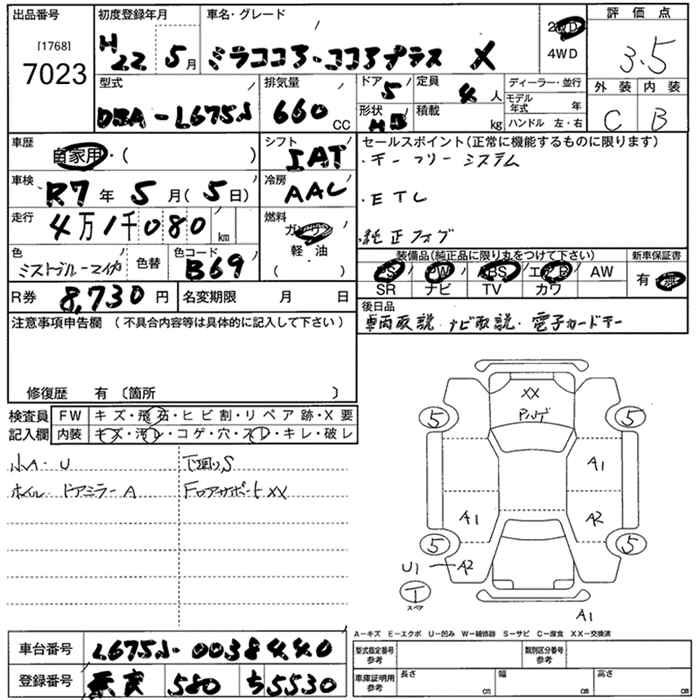 出品番号
[1768]
7023
初度登録年月
H22 5月
車名・グレード
ミラココア・ココアプラス X
2WD
4WD
評価点
3.5
外装 内装
C B
型式
DBA-L675S
排気量
660 CC
ドア 5
定員 4 人
形状 HB
積載 kg
ディーラー・並行
モデル年式 年
ハンドル 左・右
車歴
自家用・( )
シフト
IAT
セールスポイント(正常に機能するものに限ります)
・キーフリーシステム
・ETC
・純正ナビ
車検
R7年 5月(5日)
冷房
AAC
走行
4万1千080 km
燃料
ガソリン
軽・油
( )
色
ミストブルーマイカ
色替
色コード
B69
装備品(純正品に限り丸をつけて下さい)
PS PW ABS エアB AW
SR ナビ TV カワ
新車保証書
有・無
R券 8,730円
名変期限 月 日
後日品
車両取説・ナビ取説・電子カードキー
注意事項申告欄 (不具合内容等は具体的に記入して下さい)
修復歴 有〔箇所 〕
検査員 FW キズ・飛石・ヒビ割・リペア跡・X要
記入欄 内装 キズ・汚レ・コゲ・穴・スレ・キレ・破レ
小A・U
ホイル・ドアミラーA
下廻りS
FロアサポートXX
XX
5 5
A1
A1 A2
5 5
U1 A2
T
スペア
A1
A-キズ E-エクボ U-凹み W-補修跡 S-サビ C-腐食 XX-交換済
車台番号 L675S-0038440
型式指定番号 参考
類別区分番号 参考
登録番号 580 5530
車庫証明用 参考
長さ cm 幅 cm 高さ cm